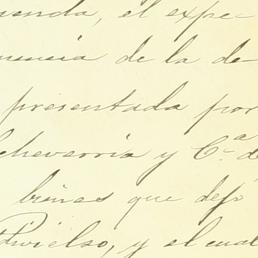 uenda, el expe-
nuncia de la de-
presentada por
cheverria y C.ª d
brinas que dejó
Urvielso, y el cual